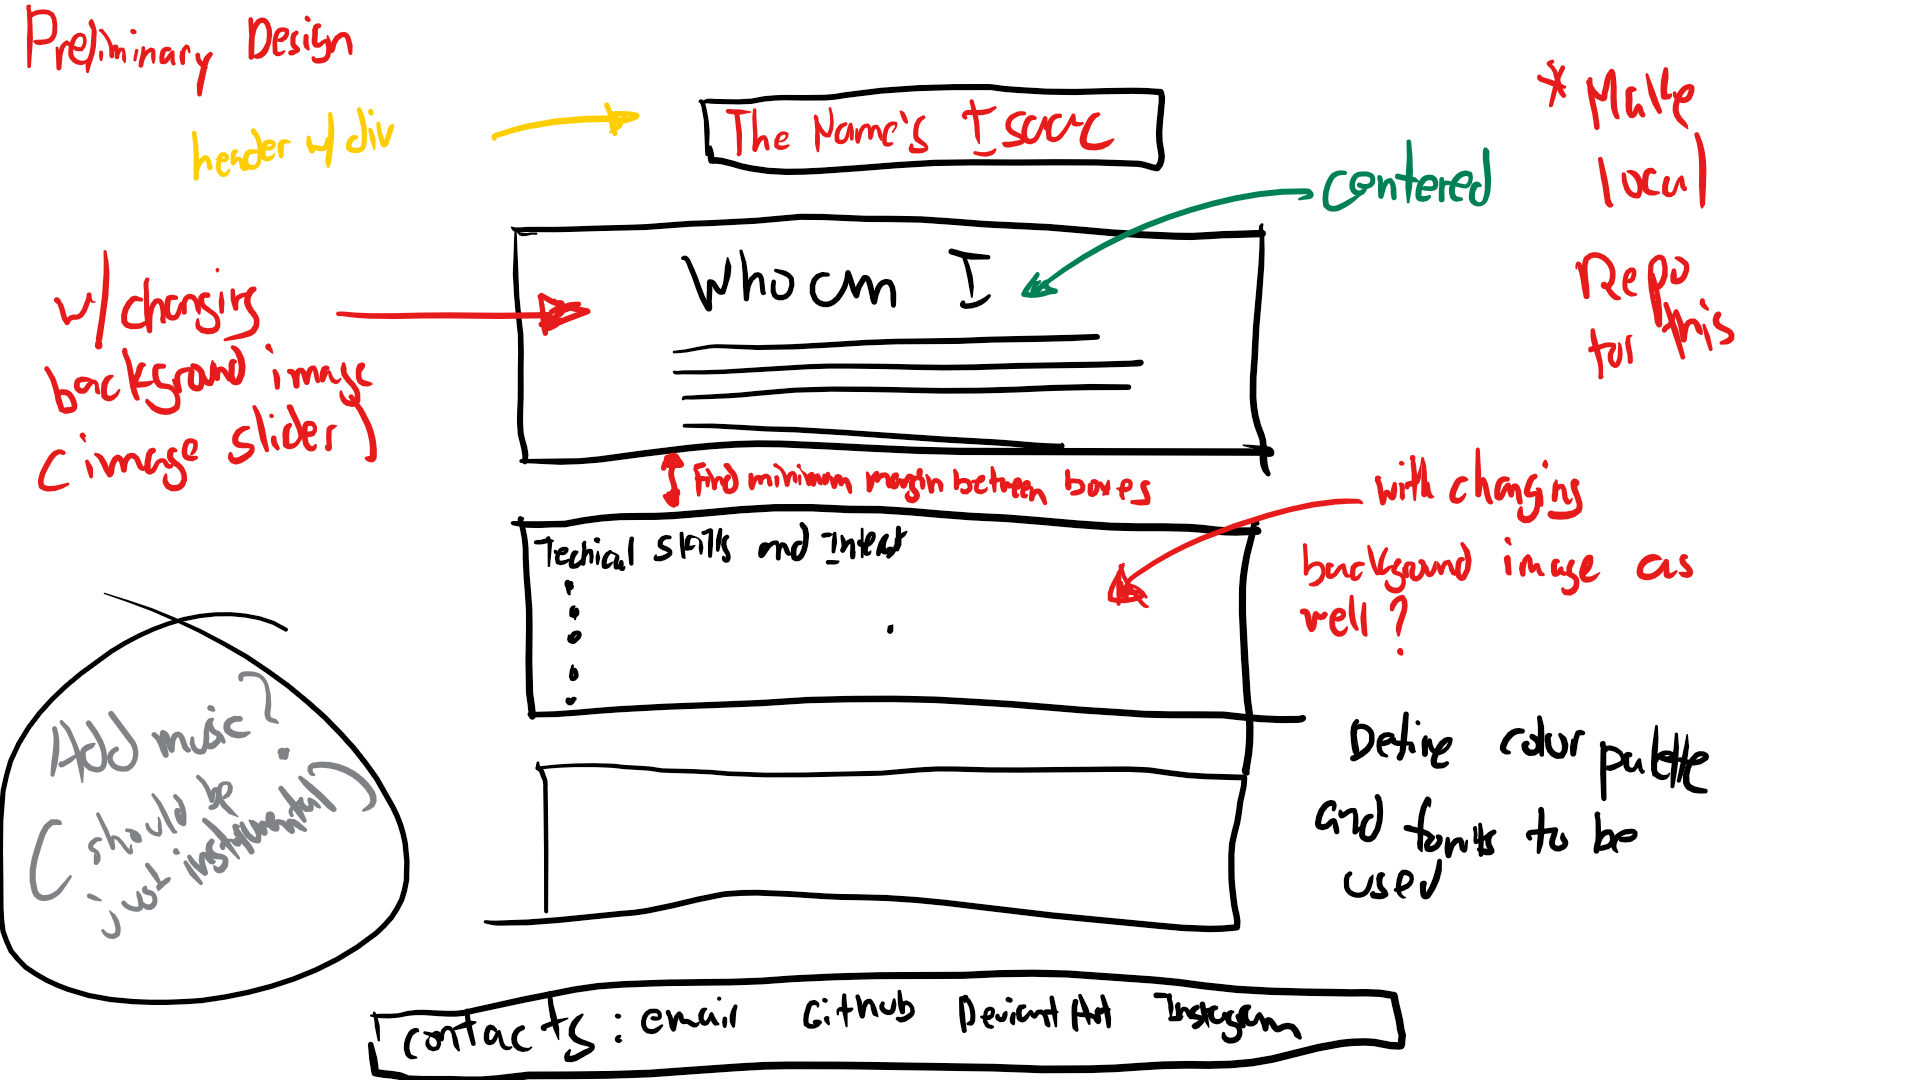 Preliminary Design
header w/ div
The Name's Isaac
* Make
local
Repo
for this
centered
Who am I
w/ changing
background image
(image slider)
Find minimum margin between boxes
with changing
background image as
well?
Techical skills and Interst
Add music?
(should be
just instrumental)
Define color palette
and fonts to be
used
contacts: email Github DeviantArt Instagram